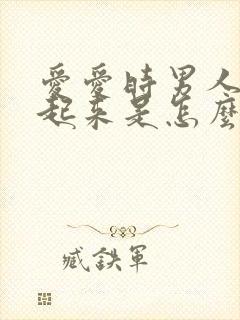 愛愛時男人
起來是怎麼
臧鉄軍